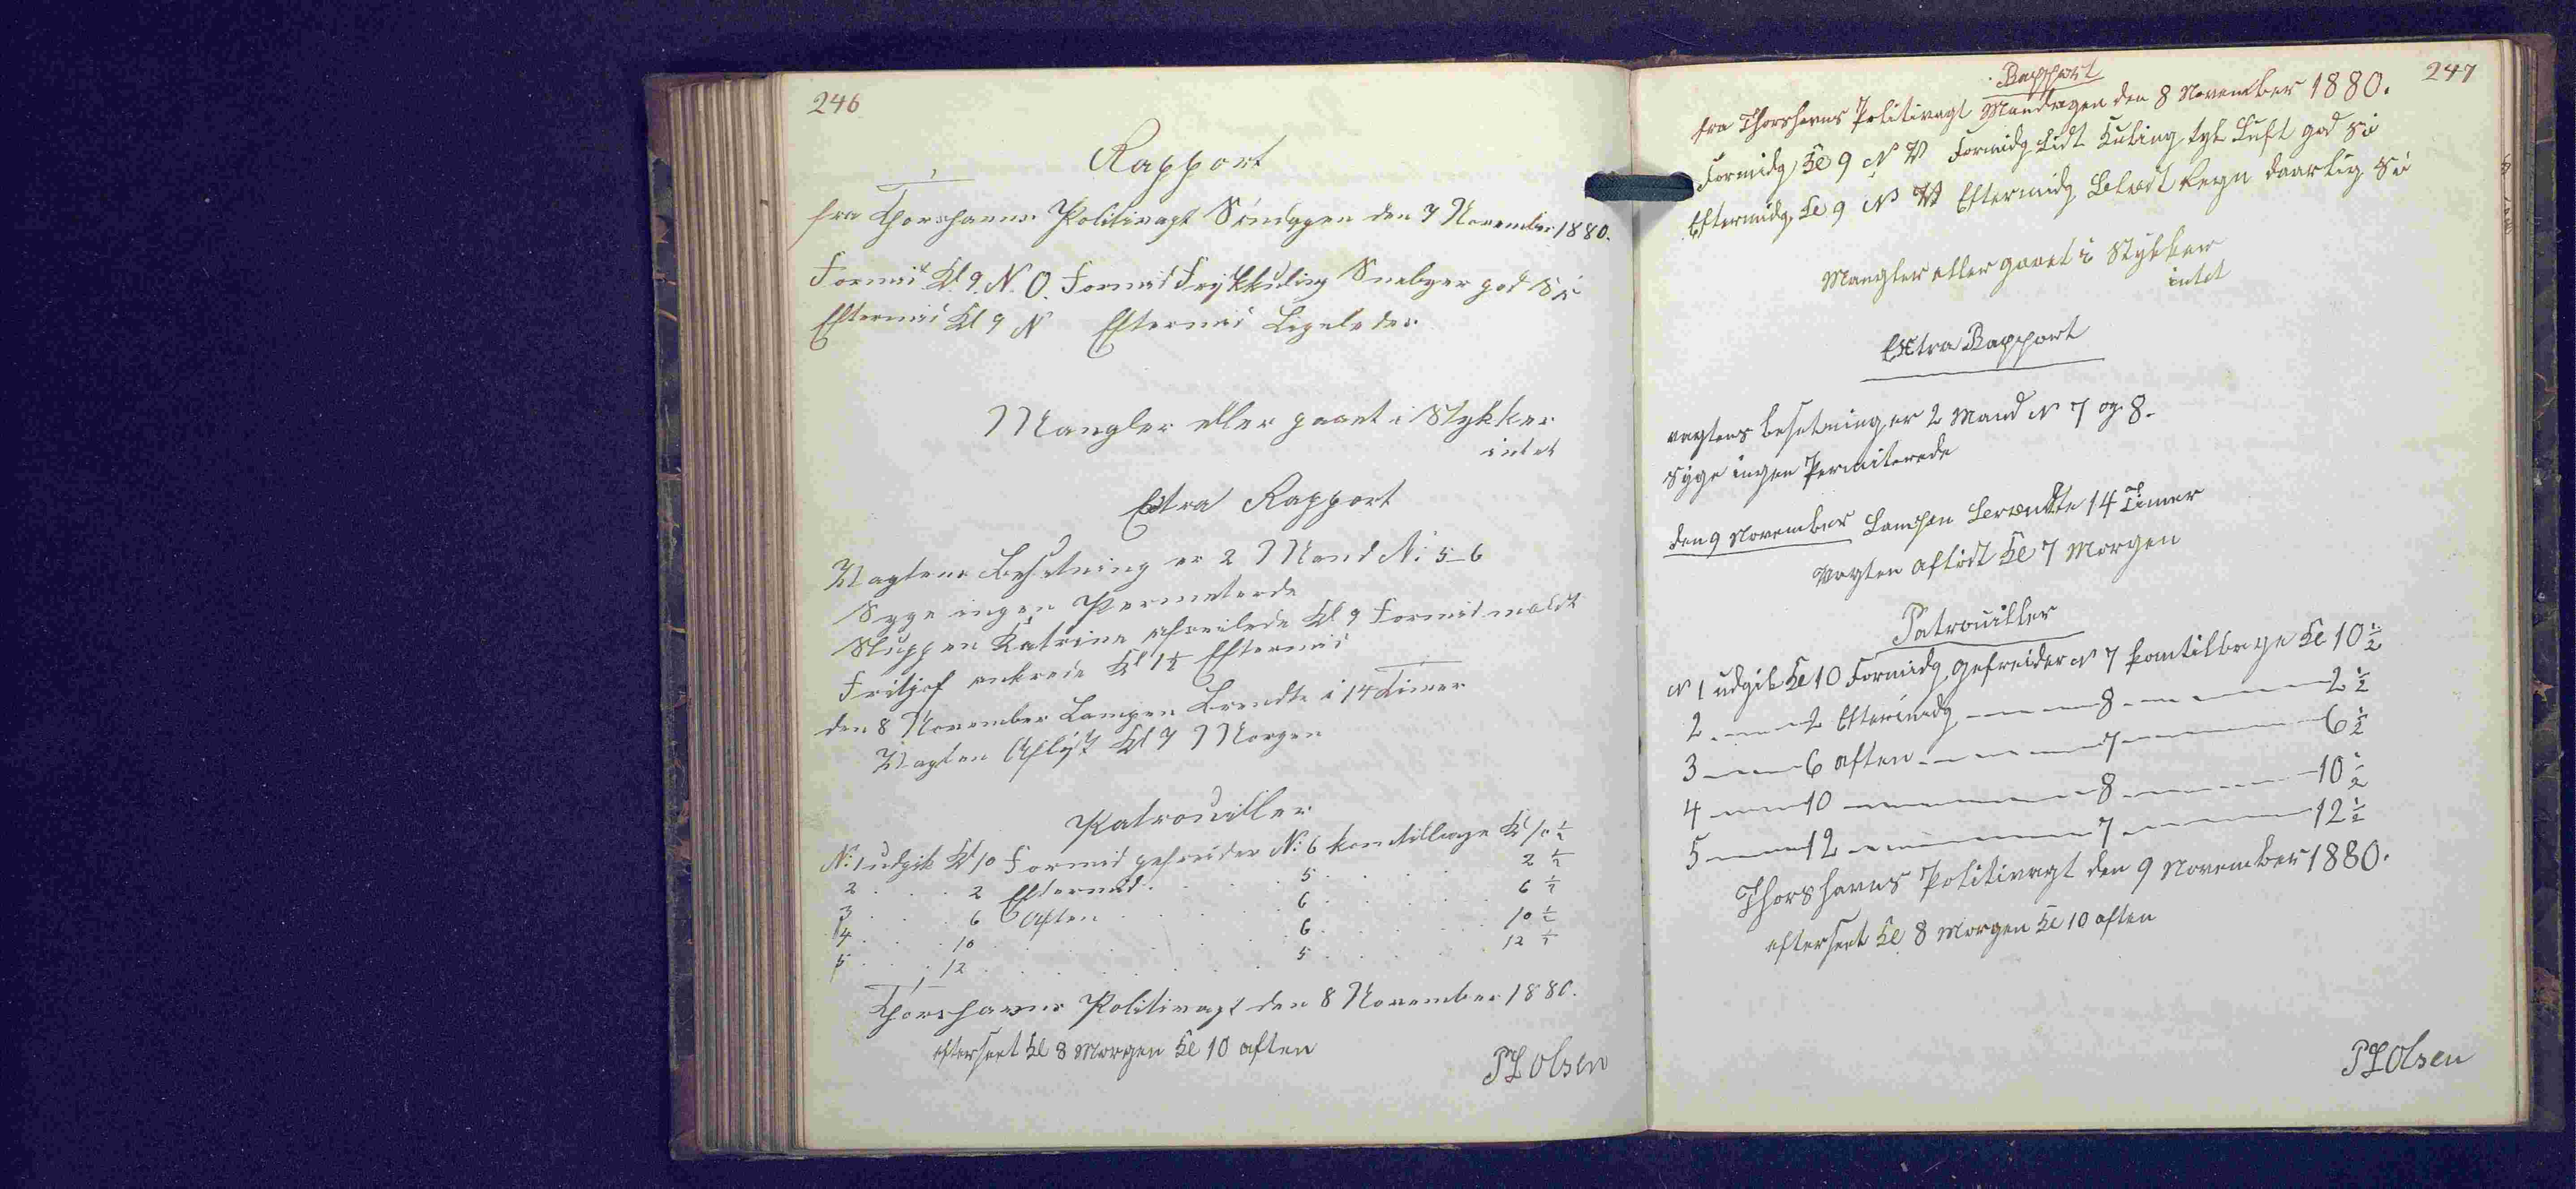 246
Rapport
fra Thorshavns Politivagt Søndagen den 7 November 1880.
Formid Kl 9. N. O. Formid Friskkuling Snebyer god Si
Eftermid Kl 9 N Eftermid Ligeledes
Mangler eller gaaet i Stykker
intet
Extra Rapport
Vagtens Besetning er 2 Mand N: 5-6
Syge ingen Permeterede
Sluppen Katrine afseilede Kl 9 Formid
Fritjof ankrede Kl 1½ Eftermid
den 8 November Lampen Brendte i 14 Timer
Vagten Afløst Kl 7 Morgen
Patrouiller
N: 1 udgik Kl 10 Formid gefreider N: 6 kom tilbage Kl 10 ½
2 . . . . 2 Eftermid . . . . 5 . . . . 2 ½
3 . . . . 6 Aften . . . . 6 . . . . 6 ½
4 . . . . 10 . . . . 6 . . . . 10 ½
5 . . . . 12 . . . . 5 . . . . 12 ½
Thorshavns Politivagt den 8 November 1880.
efterseet Kl 8 Morgen Kl 10 aften
PL Olsen
247
Rapport
fra Thorshavns Politivagt Mandagen den 8 November 1880.
Formidg Kl 9 N V Formidg Lidt Kuling tyk Luft god Si
Eftermidg Kl 9 N V Eftermidg Regn daarlig Si
Mangler eller gaaet i Stykker
intet
Extra Rapport
vagtens besetning er 2 Mand N 7 og 8.
Syge ingen Permiterede
den 9 November Lampen Berændte 14 Timer
Vagten afløst Kl 7 Morgen
Patrouiller
N 1 udgik Kl 10 Formidg gefreider N 7 kom tilbage Kl 10 ½
2 — — 2 Eftermidg — — 8 — — 2 ½
3 — — 6 aften — — 7 — — 6 ½
4 — — 10 — — 8 — — 10 ½
5 — — 12 — — 7 — — 12 ½
Thorshavns Politivagt den 9 November 1880.
efterseet Kl 8 Morgen Kl 10 aften
PL Olsen